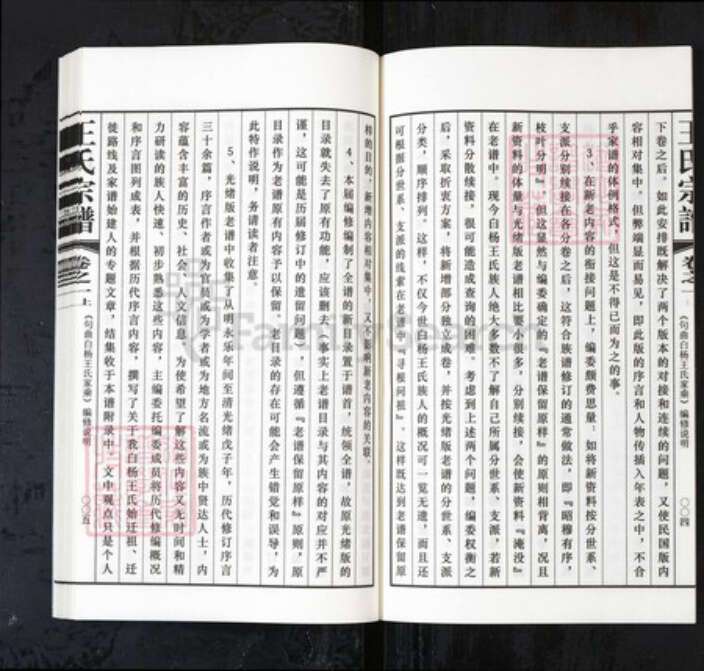 王氏宗譜
卷之一上
《句曲白杨王氏家乘》编修说明
〇〇四
下卷之后。如此安排既解决了两个版本的对接和连续的问题，又使民国版内
容相对集中，但弊端显而易见，即此版的序言和人物传插入年表之中，不合
乎家谱的体例格式，但这是不得已而为之的事。
3、在新老内容的衔接问题上，编委颇费思量。如将新资料按分世系、
支派分别续接在各分卷之后，这符合族谱修订的通常做法，即『昭穆有序，
枝叶分明』，但这显然与编委确定的『老谱保留原样』的原则相背离，况且
新资料的体量与光绪版老谱相比要小很多，分别续接，会使新资料『淹没』
在老谱中。现今白杨王氏族人绝大多数不了解自己所属分世系、支派，若新
资料分散续接，很可能造成查询的困难。考虑到上述两个问题，编委权衡之
后，采取折衷方案，将新增部分独立成卷，并按光绪版老谱的分世系、支派
分类，顺序排列。这样，不仅今世白杨王氏族人的概况可一览无遗，而且还
可根据分世系、支派的线索在老谱中『寻根问祖』。这样既达到老谱保留原
样的目的，新增内容相对集中，又不影响新老内容的关联。
4、本届编修编制了全谱的新目录置于谱首，统领全谱，故原光绪版的
目录就失去了原有功能，应该删去（事实上老谱目录与其内容的对应并不严
谨，这可能是历届修订中的遗留问题），但遵循『老谱保留原样』原则，原
目录作为老谱原有内容予以保留，老目录的存在可能会产生错觉和误导，为
此特作说明，务请读者注意。
5、光绪版老谱中收集了从明永乐年间至清光绪戊子年，历代修订序言
三十余篇，序言作者或为官员或为学者或为地方名流或为族中贤达人士，内
容蕴含丰富的历史、社会、人文信息，为使希望了解这些内容又无时间和精
力研读的族人快速、初步熟悉这些内容，主编委托编委成员将历代修编概况
和序言图列成表，并根据历代序言内容，撰写了关于我白杨王氏始迁祖、迁
徙路线及家谱始建人的专题文章，结集收于本谱附录中。文中观点只是个人
王氏宗譜
卷之一上
《句曲白杨王氏家乘》编修说明
〇〇五
FamilySearch